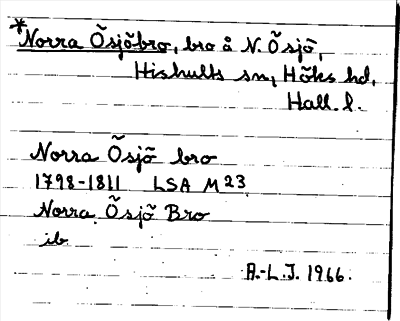 *Norra Õsjõbro, bro å N. Õsjõ,
Hishults sn, Hõks hd,
Hall. l.
Norra Õsjõ bro
1798-1811 LSA M23
Norra Õsjõ Bro
ib.
A.-L.J. 1966.